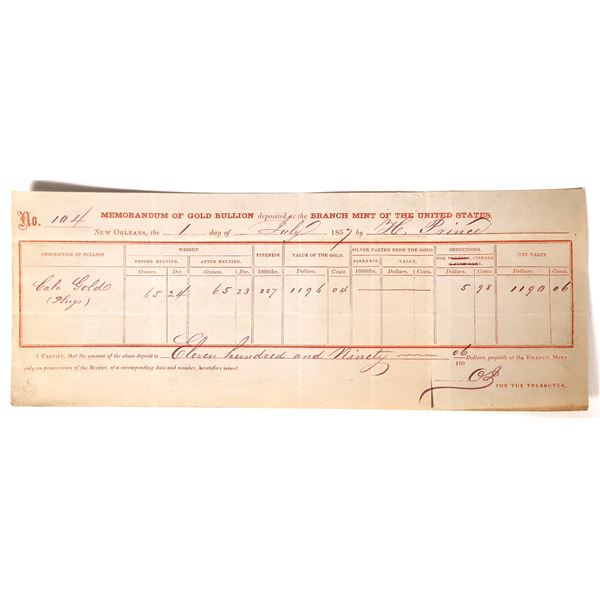 No. 104 MEMORANDUM OF GOLD BULLION deposited at the BRANCH MINT OF THE UNITED STATES,
NEW ORLEANS, the 1 day of July 1857 by H. Prince
DESCRIPTION OF BULLION. WEIGHT. FINENESS VALUE OF THE GOLD SILVER PARTED FROM THE GOLD DEDUCTIONS. NET VALUE
BEFORE MELTING. AFTER MELTING. FINENESS. VALUE. FOR COINAGE
Ounces. Dec. Ounces. Dec. 1000ths. Dollars. Cents. 1000ths. Dollars. Cents. Dollars. Cents. Dollars. Cents.
Cala Gold 65 24 65 23 887 1196 04 5 98 1190 06
(Slugs)
I CERTIFY, that the amount of the above deposit is Eleven hundred and Ninety 06/100 Dollars, payable at the BRANCH MINT
only on presentation of the Receipt, of a corresponding date and number, heretofore issued.
FOR THE TREASURER.